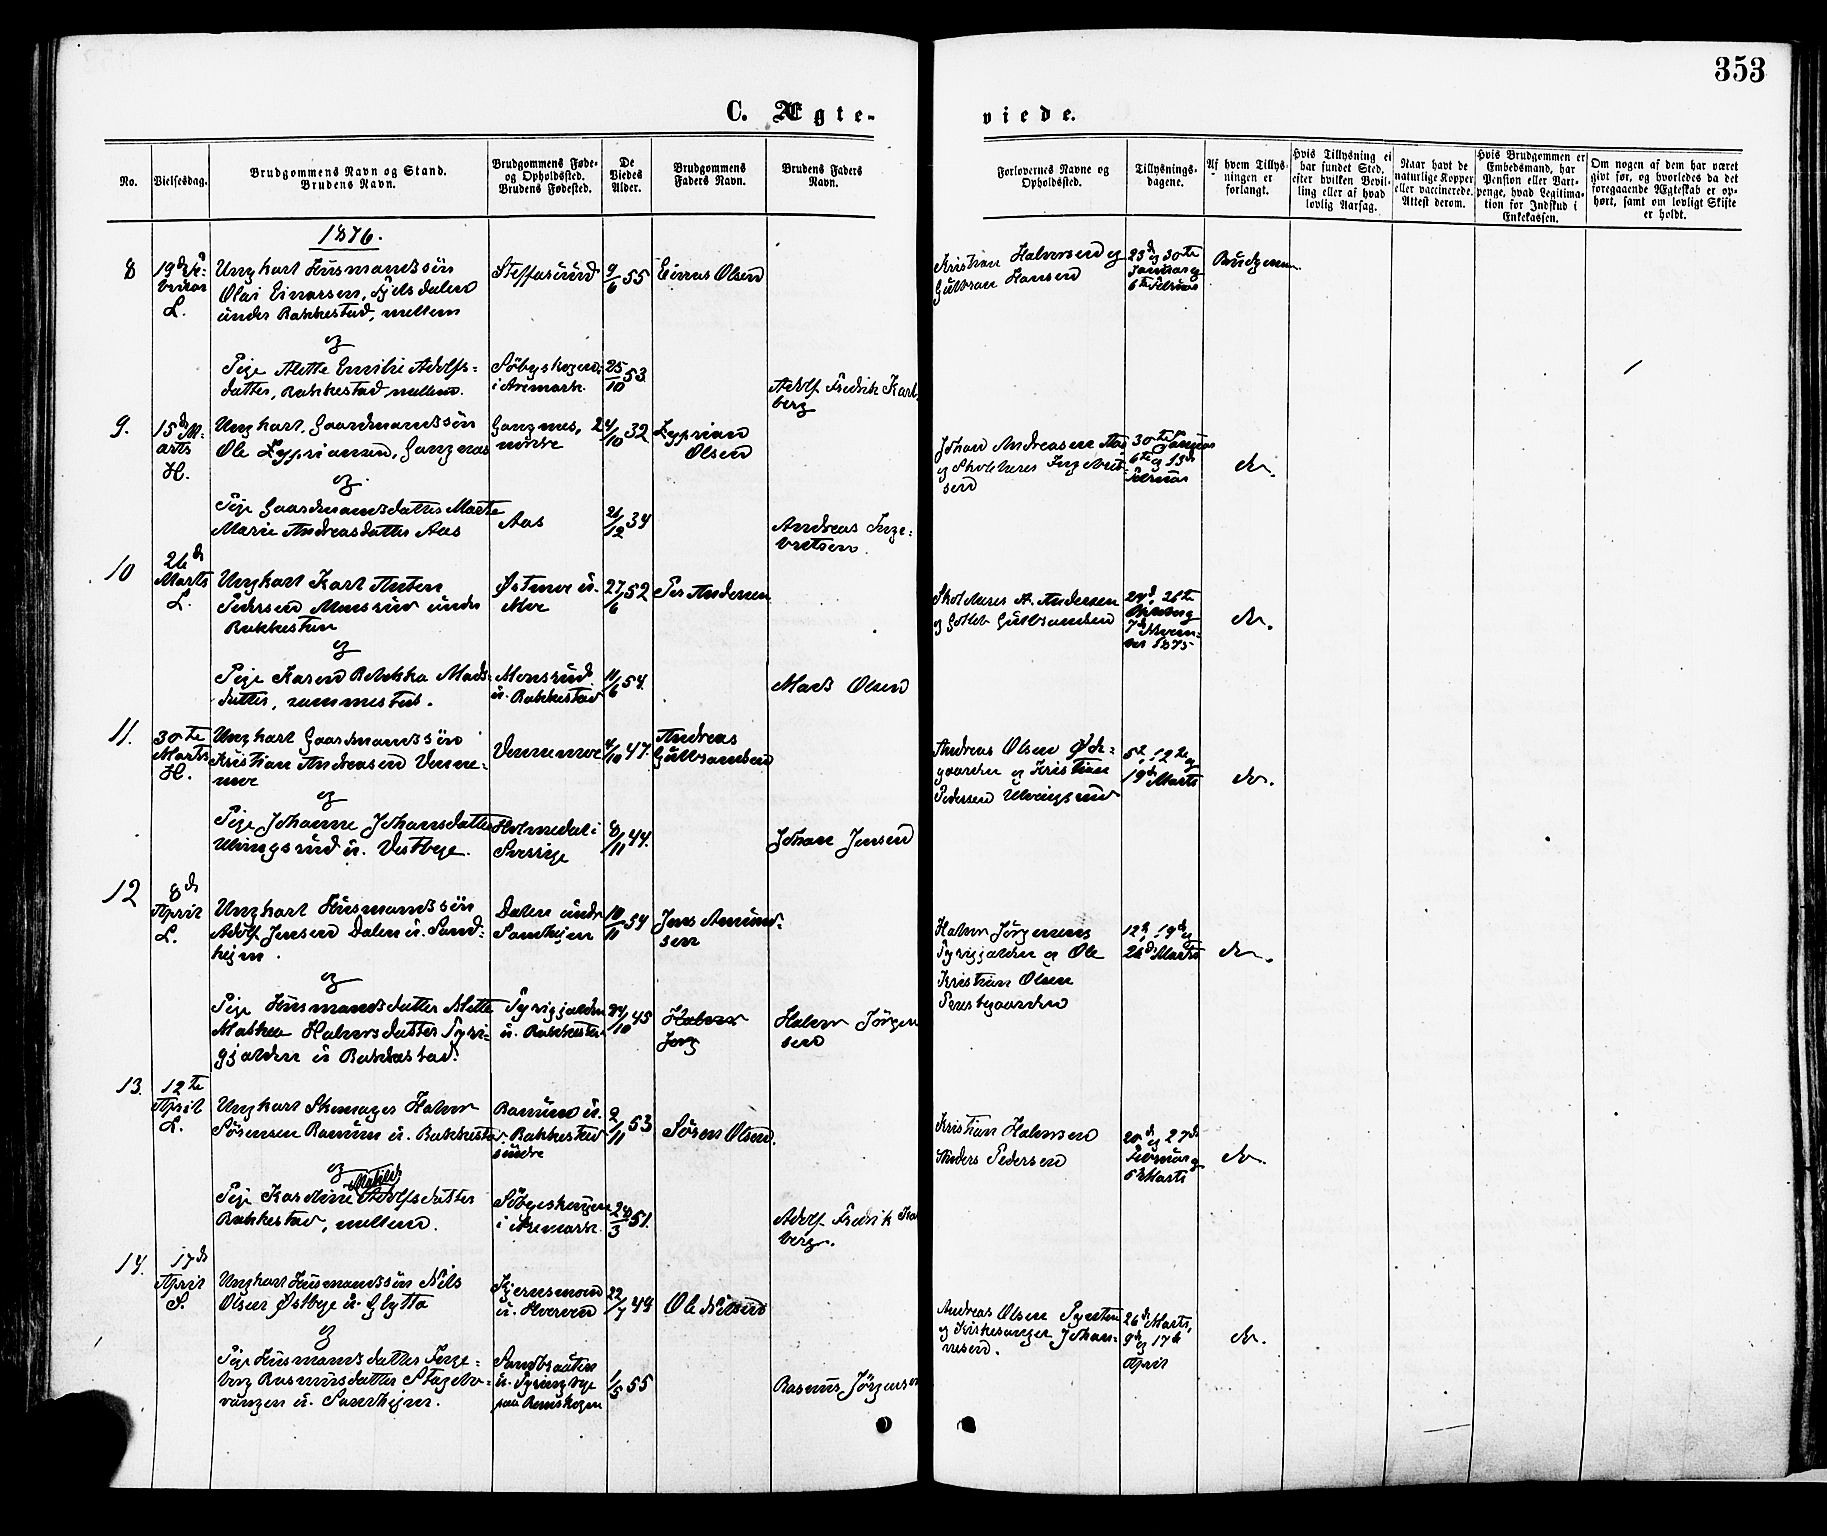 353
C. Ægte-
viede.
No.
Vielsesdag.
Brudgommens Navn og Stand.
Brudens Navn.
Brudgommens Føde-
og Opholdssted.
Brudens Fødested.
De
Viedes
Alder.
Brudgommens
Faders Navn.
Brudens Faders
Navn.
Forlovernes Navne og
Opholdssted.
Tillysnings-
dagene.
Af hvem Tillys-
ningen er
forlangt.
Hvis Tillysning ei
har fundet Sted,
efter hvilken Bevil-
ling eller af hvad
lovlig Aarsag.
Naar havt de
naturlige Kopper
eller vaccinerede.
Attest derom.
Hvis Brudgommen er
Embedsmand, har
Pension eller Vart-
penge, hvad Legitima-
tion for Indskud i
Enkekassen.
Om nogen af dem har været
givt før, og hvorledes da det
foregaaende Ægteskab er op-
hørt, samt om lovligt Skifte
er holdt.
1876.
8
L.
Ungkarl Husmandssön
Olai Einarsen,
under Rakkestad, mellem
9/6 55
Einar Olsen
Kristian Halvorsen og
Gulbran Hansen
23d og 30te
Januar og
6te Februar
Brudgommen
og
Pige Alette Emilie Adolfs-
datter, Rakkestad mellem.
i Aremark
25/10 53.
Adolf Fredrik Karl
berg
9.
15d M-
arts
H.
Ungkarl, Gaardmandssön
Ole
24/10 32
Olsen
Johan Andreasen Aas
og Skolelærer Ingebret-
sen
30te Januar
6te og 13de
Februar
do.
og
Pige Gaardmandsdatter Marte
Marie Andreasdatter Aas
Aas
21/12 34
Andreas Inge-
bretsen.
10
26d
Marts
L.
Ungkarl Karl Anten
Pedersen Monsrud under
Rakkestad
27/6 52
Per Andersen
Skolelærer A. Andersen
og Gulbrandsen
24d, 26te
7d Novem-
ber 1875
do.
og
Pige Karen Rebekka Mads-
datter, sammested.
Monsrud
u. Rakkestad
11/6 54.
Mads Olsen
11.
30te
Marts
H.
Ungkarl Gaardmandssön
Kristian Andreasen Venne-
moe
Vennemoe
4/10 47.
Andreas
Gulbrandsen
Andreas Olsen Øde-
gaarden og Kristian
Pedersen
5te, 12te og
19de Marts
do.
og
Pige Johanne Johansdatter
u. Vestbye.
Holmedal i
Sverrige
8/11 44.
Johan Jensen
12
8de
April
L.
Ungkarl Husmandssön
Adolf Jensen Dalen u. Sand-
hejm.
Dalen under
Sandhejm
10/11 54
Jens Amund-
sen
Halvor Jörgensen
og Ole
Kristian Olsen
Prestegaarden
12te, 19de og
26de Marts
do.
og
Pige Husmandsdatter Mette
Mathea Halvorsdatter Tyri-
gjelden u. Rakkestad.
Tyrigjelden
u. Rakkestad
24/10 45
Halvor
Jörg
Halvor Jörgen
sen
13.
12te
April
L.
Ungkarl Skomager Halvor
Sörensen Ranum u. Rakkestad
Ranum u.
Rakkestad
söndre
2/11 53
Sören Olsen.
Kristian Halvorsen
Anders Pedersen
20de og 27de
Februar og
5te Marts
do.
og
Pige Karoline Matilde Adolfsdatter
Rakkestad, mellem.
i Aremark
28/3 51.
Adolf Fredrik Karl
berg.
14.
17de
April
S.
Ungkarl Husmandssön Nils
Olsen Østbye u. Glytta
22/7 49
Ole Nilsen
Andreas Olsen
og Kirkesanger Johan-
nesen.
26de Marts,
9de og 17de
April
do.
og
Pige Husmandsdatter Inge-
borg Rasmusdatter
u. Sandhejm.
Sandbraaten
paa Rømskogen
1/5 55
Rasmus Jörgensen